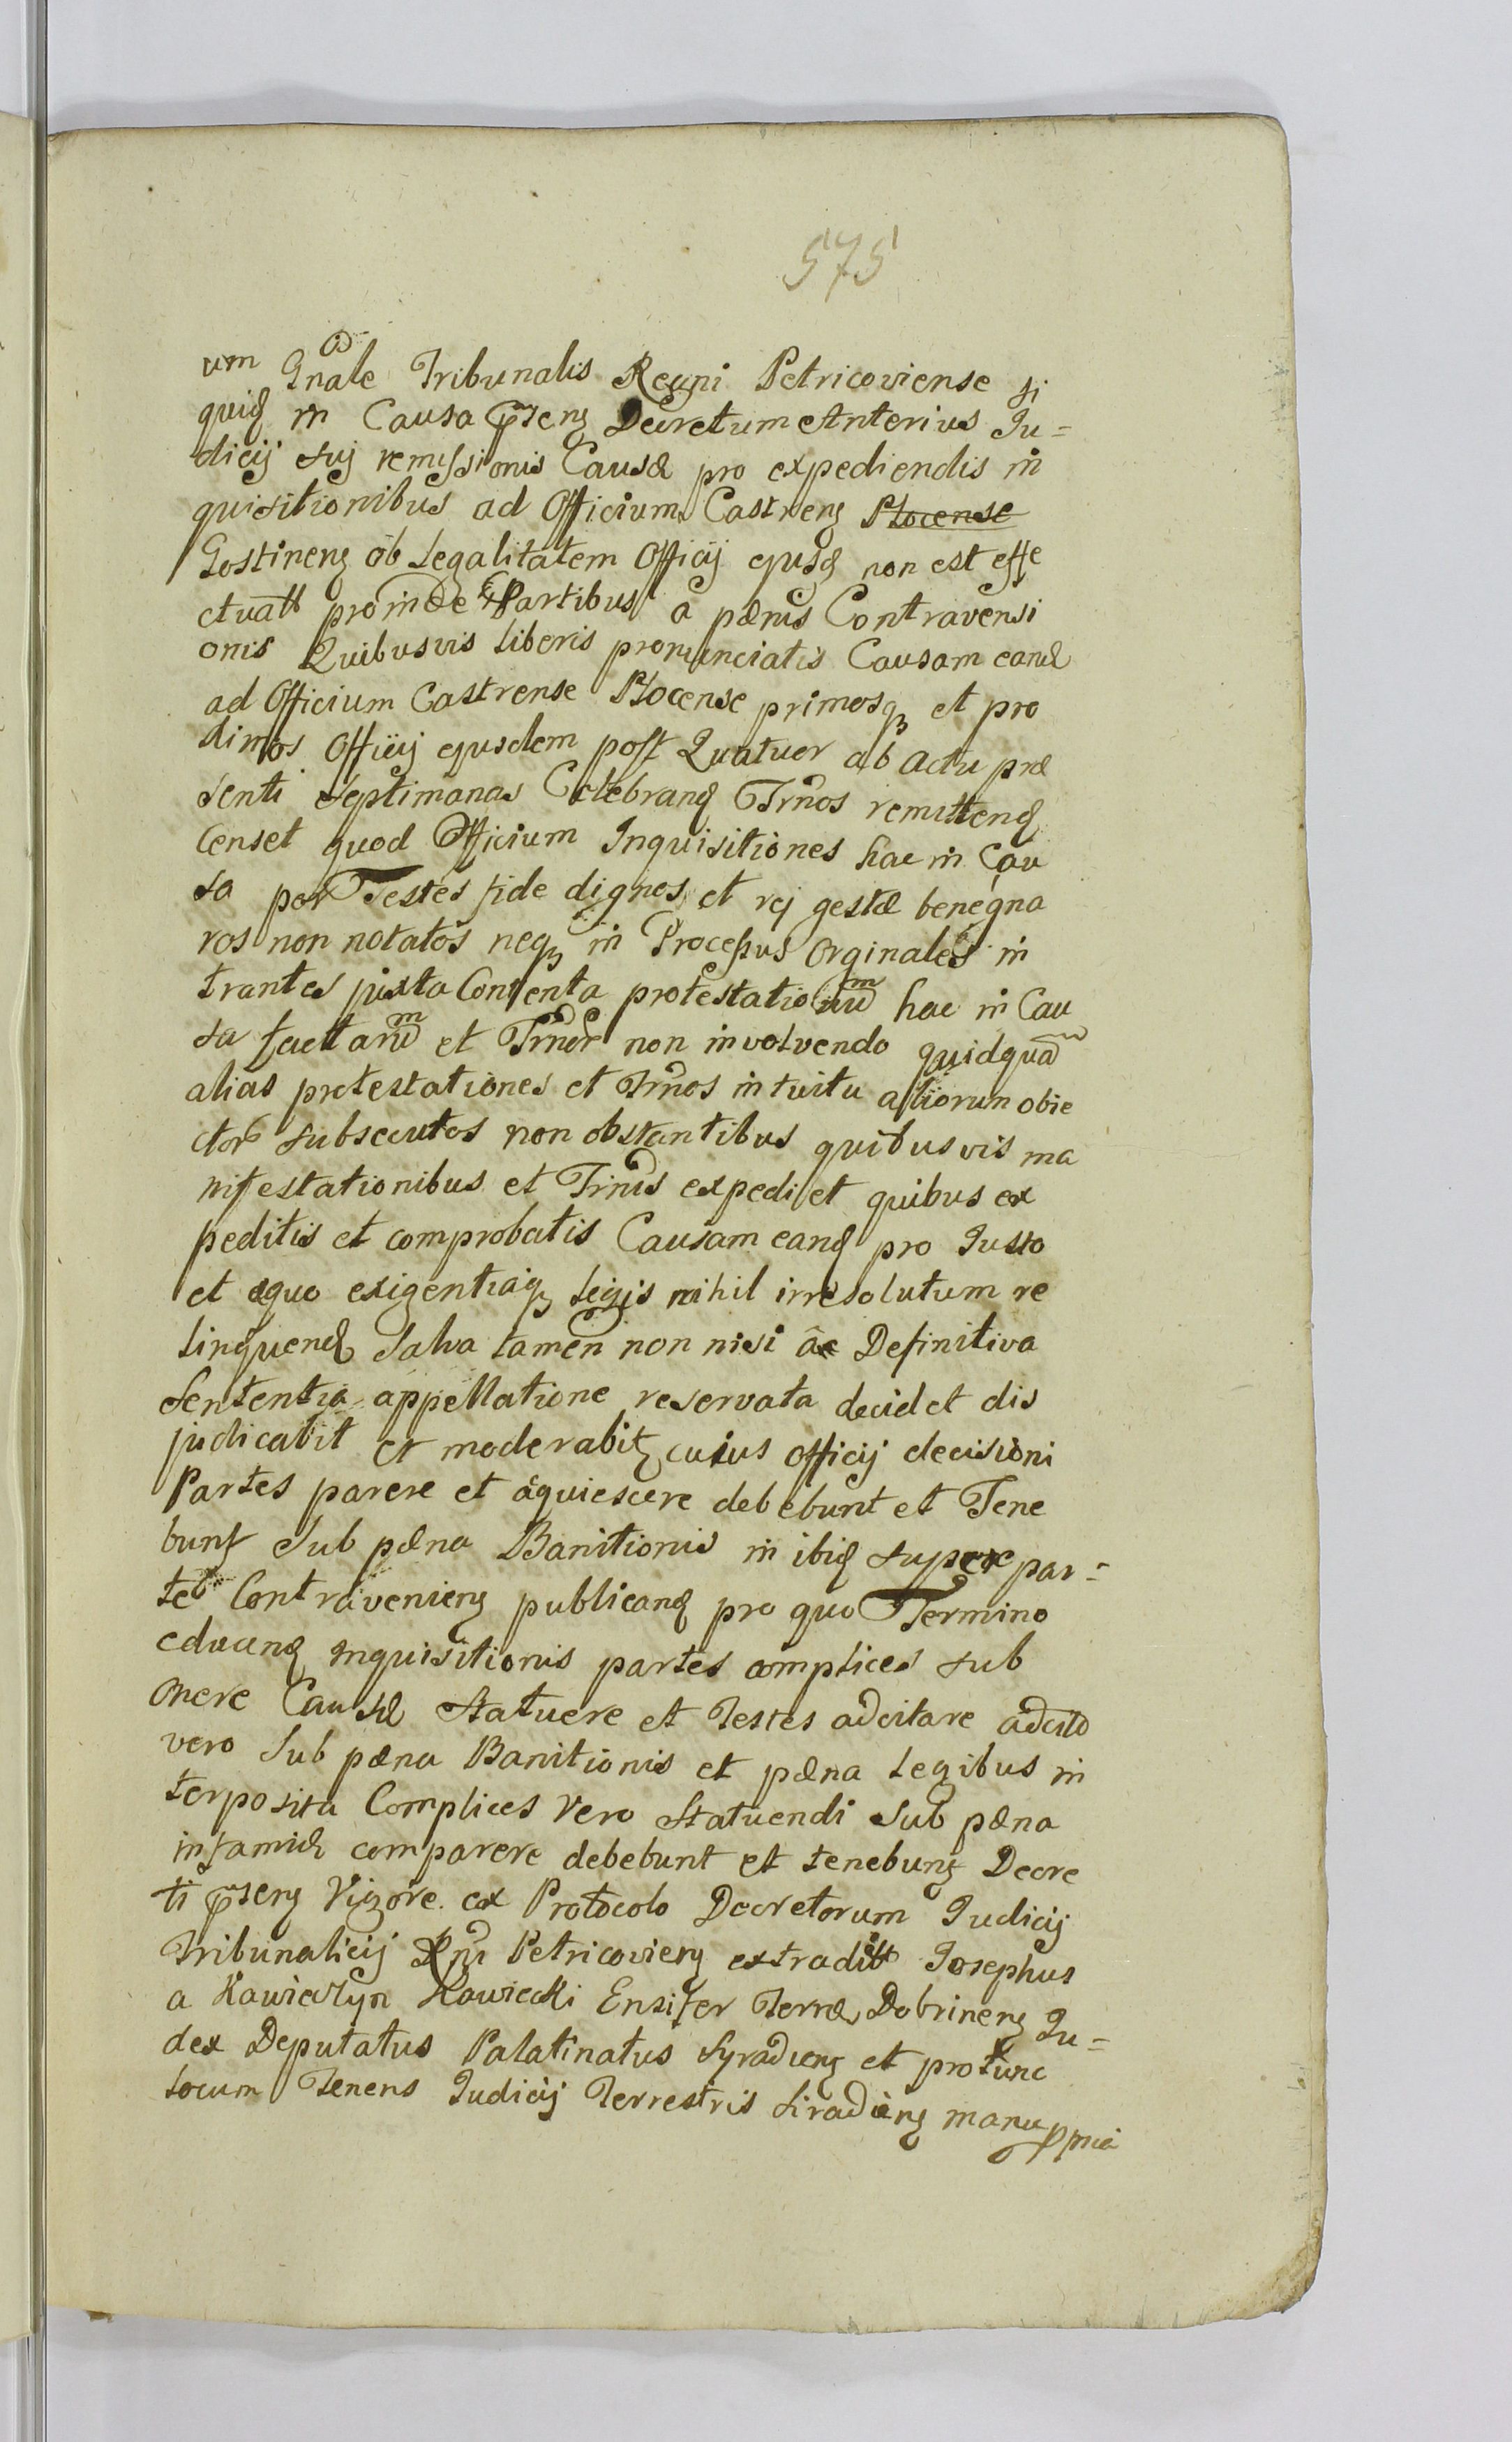 575
um Gnale Tribunalis Regni Petricoviense si
quid in Causa pnseng Decretum Anterius Ju=
dicij sui remissionis Causæ pro expediendis in
quisitionibus ad Officium Castreng Plocense
Gostineng ob Legalitatem Officij ejusd non est effe
ctuatt proinde Partibus a pænis Contravensi
onis Quibusvis liberis pronunciatis Causam eand
ad Officium Castrense Plocense primosq et pro
ximos Officij ejusdem post Quatuor ab actu præ
senti septimanas Celebrand Trnos remittend
Censet quod Officium Inquisitiones hac in Cau
sa per Testes fide dignos et rej gestæ bene gna
ros non notatos neq in Processus Orginales in
trantes juxta Contenta protestationum hac in Cau
sa factarum et Trnor non involvendo quidquam
alias protestationes et Trnos intuitu aliorum obie
ctor subsecutos non obstantibus quibusvis ma
nifestationibus et Trnis expediet quibus ex
peditis et comprobatis Causam eand pro Justo
et æquo exigentiaq legis nihil irresolutum re
linquend Salva tamen non nisi ac Definitiva
Sententia appellatione reservata decidet dis
judicabit et moderabit cuius officij decisioni
Partes parere et aquiescere debebunt et Tene
bunt Sub pæna Banitionis in ibid super par=
te Contravenieng publicand pro quo Termino
educend inquisitionis partes complices sub
onere Causæ statuere et Testes adcitare adcito
vero Sub pæna Banitionis et pæna legibus in
terposita Complices vero Statuendi Sub pæna
infamiæ comparere debebunt et tenebung Decre
ti pnseng Vigore. ex Protocolo Decretorum Judicij
Tribunalicij Rni Petricovieng extraditt Josephus
a Kawieczyn Kawiecki Ensifer Terræ Dobrineng Ju=
dex Deputatus Palatinatus Syradieng et protunc
locum Tenens Judicij Terrestris Siradieng manu
ppria